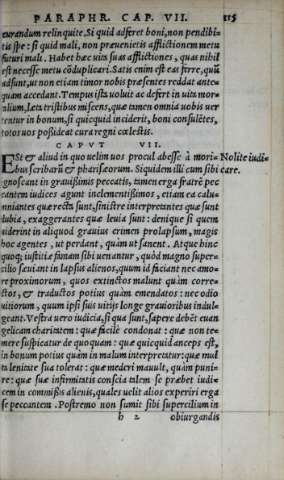 PARAPHR. CAP. VII. 115
curandum relinquite. Si quid adferet boni, non pendibi-
tis spe: si quid mali, non præuenietis afflictionem metu
futuri mali. Habet hæc uita suas afflictiones, quas nihil
est necesse metu cōduplicari. Satis enim est eas ferre, quū
adsunt, ut non etiam timor nobis præsentes reddat ante-
quam accedant. Tempus ista uoluit ac defert in uita mor-
talium, læta tristibus miscens, quæ tamen omnia uobis uer
tentur in bonum, si quicquid inciderit, boni consuletis,
totos uos possideat cura regni cœlestis.
CAPVT VII.
ESt & aliud in quo uelim uos procul abesse à mori-
bus scribarū & pharisæorum. Siquidem illi cum sibi
Nolite iudi-
care.
gnoscant in grauissimis peccatis, tamen erga fratrē pec
cantem iudices agunt inclementissimos, etiam ea calu-
mniantes quæ recta sunt, sinistre interpretantes quæ sunt
dubia, exaggerantes quæ leuia sunt: denique si quem
uiderint in aliquod grauius crimen prolapsum, magis
hoc agentes, ut perdant, quàm ut sanent. Atque hinc
quoq; iustitiæ famam sibi uenantur, quòd magno super-
cilio sæuiant in lapsus alienos, quum id faciant nec amo-
re proximorum, quos extinctos malunt quàm corre-
ctos, & traductos potius quàm emendatos: nec odio
uitiorum, quum ipsi suis uitijs longe grauioribus indul-
geant. Vestra uero iudicia, si qua sunt, sapere debēt euan
gelicam charitatem: quæ facile condonat: quæ non te-
mere suspicatur de quoquam: quæ quicquid anceps est,
in bonum potius quàm in malum interpretatur: quæ mul
ta lenitate sua tolerat: quæ mederi mauult, quàm puni-
re: quæ suæ infirmitatis conscia talem se præbet iudi-
cem in commissis alienis, quales uelit alios experiri erga
se peccantem. Postremo non sumit sibi supercilium in
h 2 obiurgandis